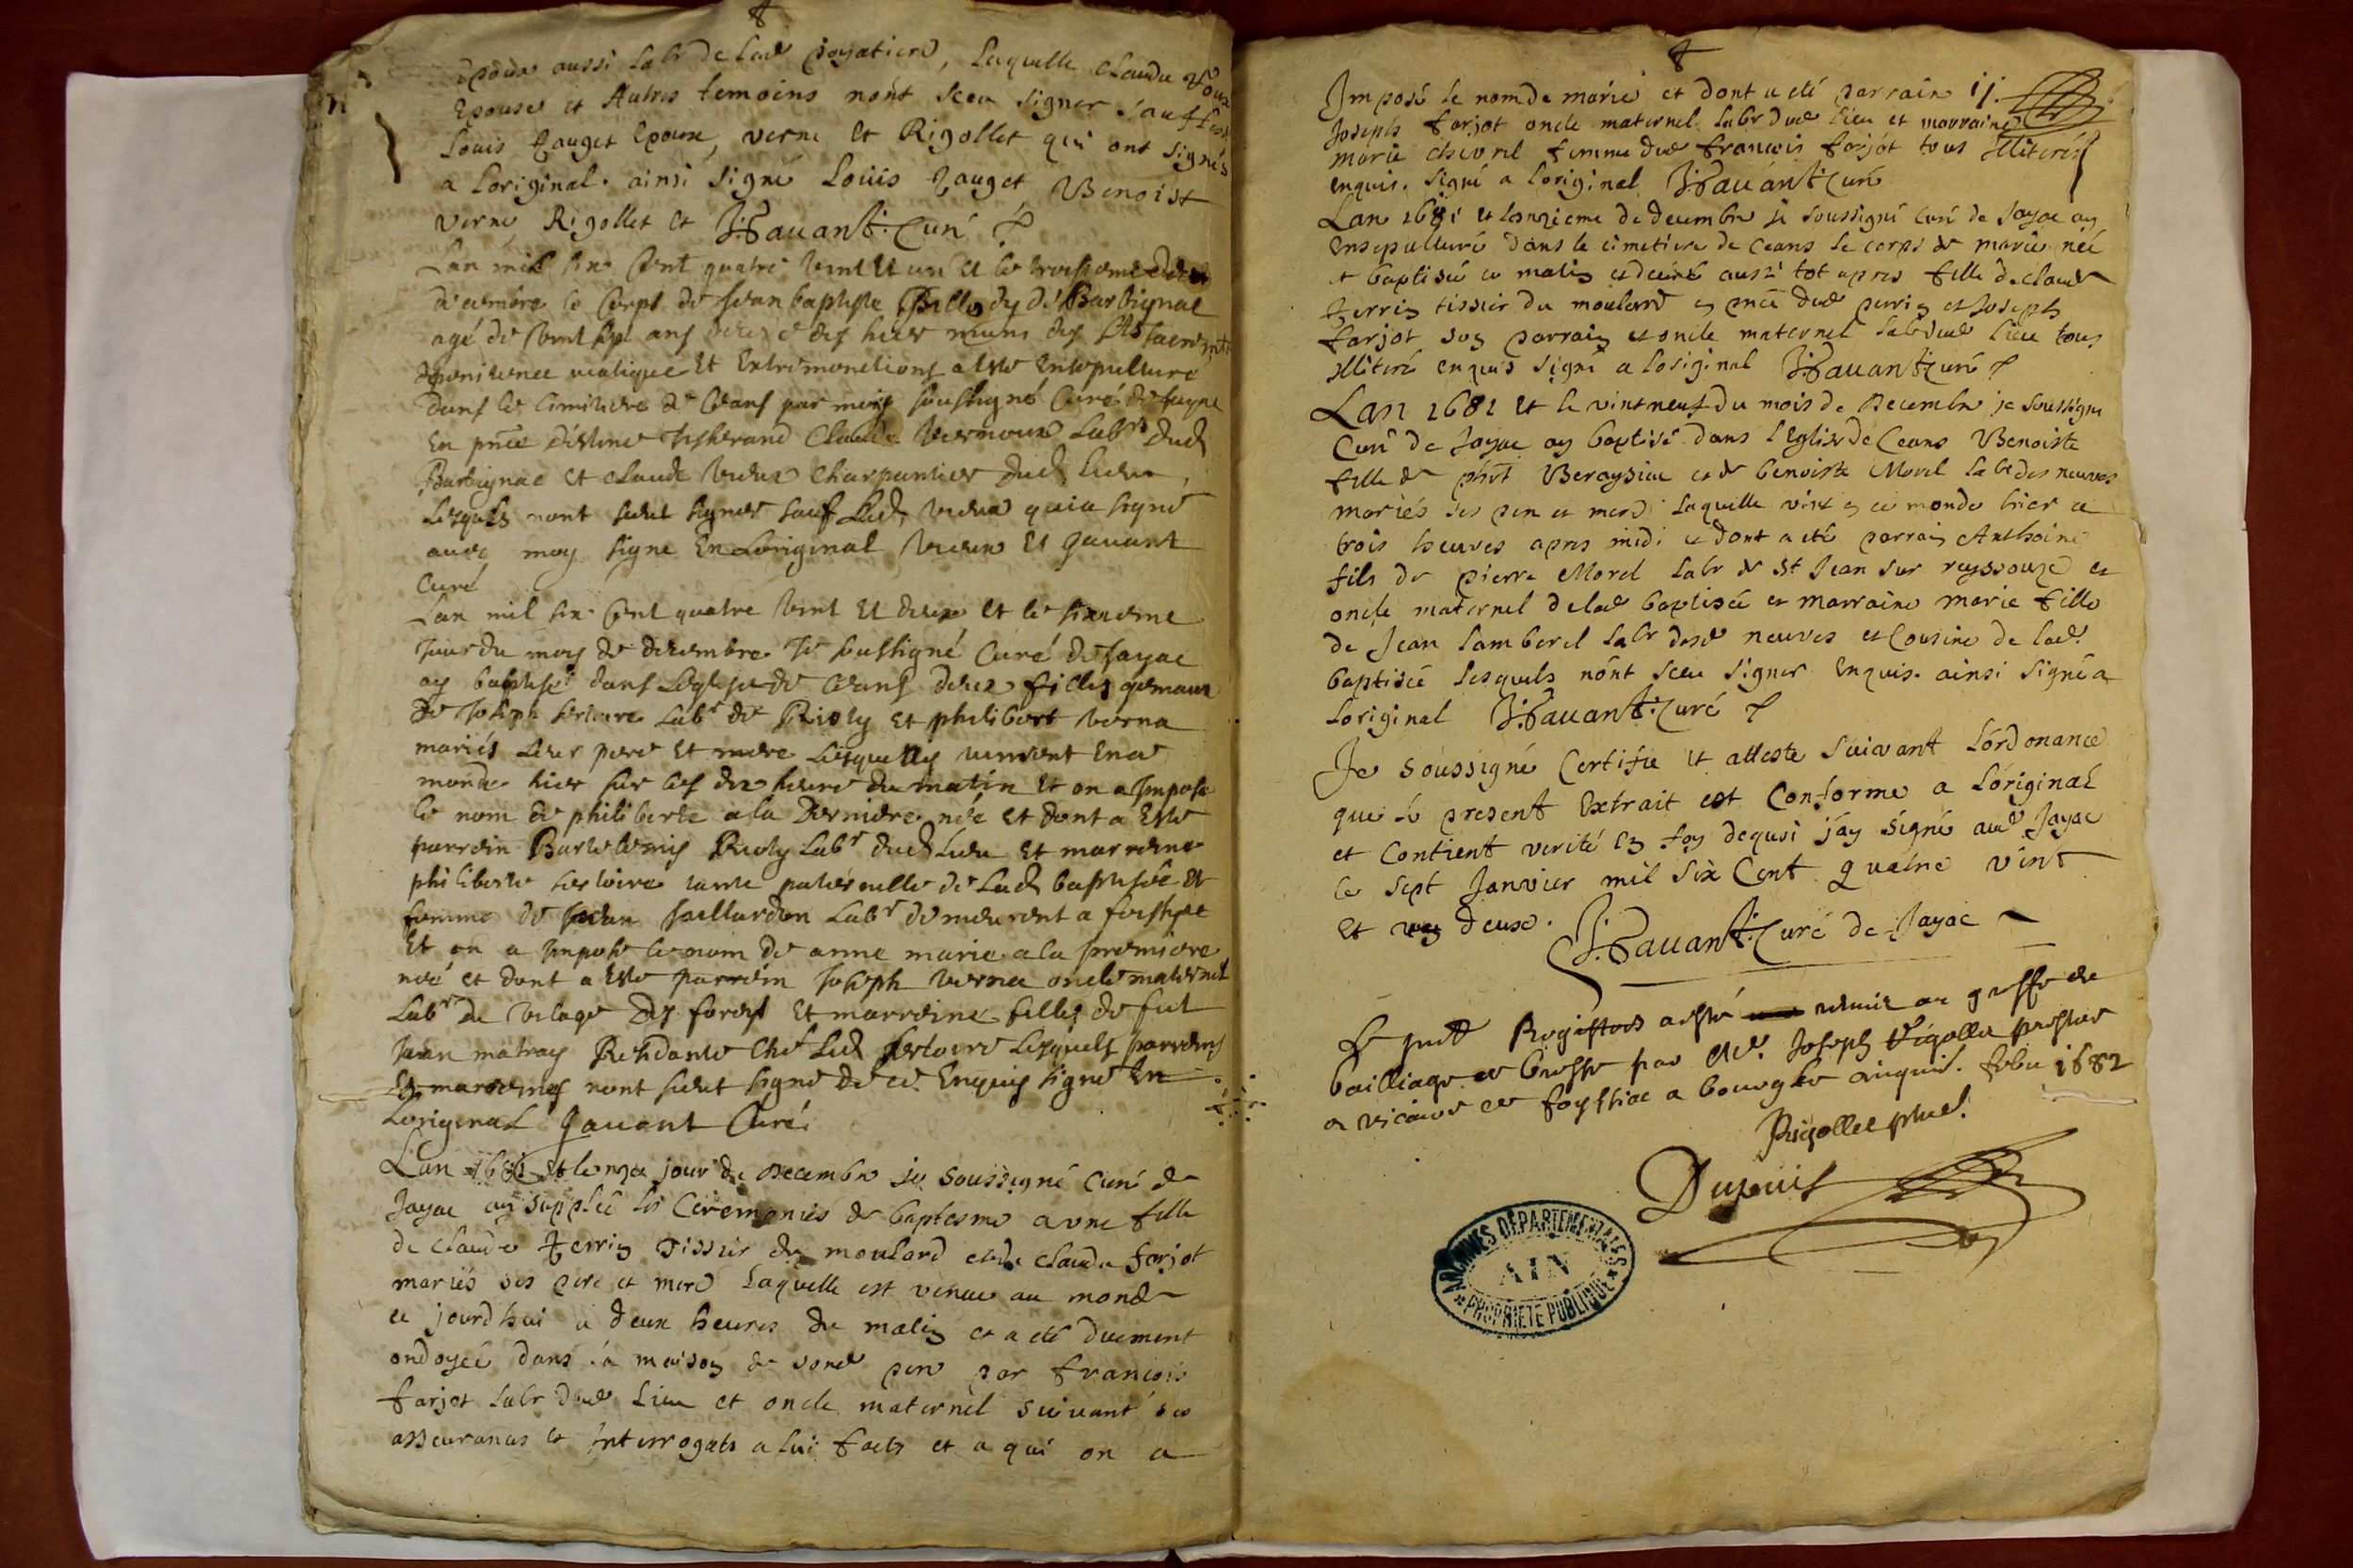 aussi labr de lad payatiere, laquelle claude
Epouse et Autres temoins nónt sceu signer sauf
Louis Epoux, verne et Rigollet qui ont signés
a loriginal. ainsi signé Loüis Benoist
verne Rigollet et Curé
Lan mil six Cent quatre vint et un et le troisieme
decembre le Corps de Jean baptiste de Barbignac
agé de vint sept ans hier muni des
penitence viatique et Extremonctions a este ensepulturé
dans le Cimitiere de Ceans par moy soussigné Curé de Jayac
En pnce Tisserand Claude Labr dud
Barbignac et claude charpentier dud lieu
Lesquels nont sceut signer sauf Led qui a signé
avec moy signe En Loriginal et Gavant
Curé
Lan mil six Cent quatre vint et deux et le sixieme
Jour du moys de decembre Je soussigné Curé de Jayac
ay baptisé dans Leglise de Ceans deux filles gemaux
de Joseph Labr de et philiberte verna
mariés leur pere et mere Lesquelles vinrent en ce
monde hier sur les dix heure du matin et on a Imposé
le nom de philiberte a la derniere née et dont a este
parrein Bartelemis Labr dud Lieu et marreine
philiberte tante paternelle de Lad baptisée et
femme de Jean Labr demeurent a foissiat
Et on a Imposé le nom de anne marie a la premiere
née et dont a este parrein Joseph verna oncle maternel
Labr du vilage des forest et marreine fille de fut
Jean matray Residante Ched Led Lesquels parreins
et marreines nont sceut signé de ce Enquis signé En
Loriginal Gavant Curé.
Lan 1681 et lonze jour de decembre je soussigné curé de
Jayac ay supplée les Cérémonies de baptesme a vne fille
de claude perrin tissier du moulard et de claude farjot
mariés ses pere et mere laquelle est venue au monde
ce jourdhui a deux heures du matin et a eté duement
ondoyée dans la maison de sond pere par francois
farjot labr dud lieu et oncle maternel suivant ses
asseurances et Interrogats a lui faits et a qui on a
Imposé le nom de marie et dont a eté parrain
Joseph farjot oncle maternel labr dud lieu et marraine
marie chevrel femme dud francois farjot tous illiteres
enquis. signé a loriginal Curé
Lan 1681 et lonzieme de decembre je soussigné curé de Jayac ay
ensepulturé dans le cimetiere de ceans le corps de marie née
et baptisée ce matin et decedée aussi tot apres fille de claude
perrin tissier du moulard en pnce dud perrin et Joseph
farjot son parrain et oncle maternel labr dud lieu tous
illiteré enquis signé a loriginal Curé
Lan 1681 et le vint neuf du mois de Decembre je soussigné
Curé de Jayac ay baptisé dans l'Eglise de Ceans Benoiste
fille de phirt Beraysiac et de benoiste Morel labr des neuves
mariés ses pere et mere laquelle vint en ce monde hier a
trois heures apres midi et dont a eté parrain Anthoine
fils de pierre Morel labr de St Jean sur reyssouze et
oncle maternel de lad baptisée et marraine marie fille
de Jean lamberel labr desd neuves et Cousine de lad.
baptisée lesquels nónt sceu signer enquis. ainsi signé a
loriginal Curé
Je soussigné Certifie et atteste suivant lordonance
que le present Extrait est Conforme a Loriginal
et Contient verité en foy dequoi jáy signé aud Jayac
le sept Janvier mil six Cent quatre vint
et deux.
Curé de Jayac
Le Registres a esté remis au greffe du
bailliage de bresse par Me. Joseph Rigollet prestre
vicaire de foyssiac a bourg le febu 1682
Rigollet
Dupuis
ARCHIVES DÉPARTEMENTALES
AIN
* PROPRIÉTÉ PUBLIQUE *